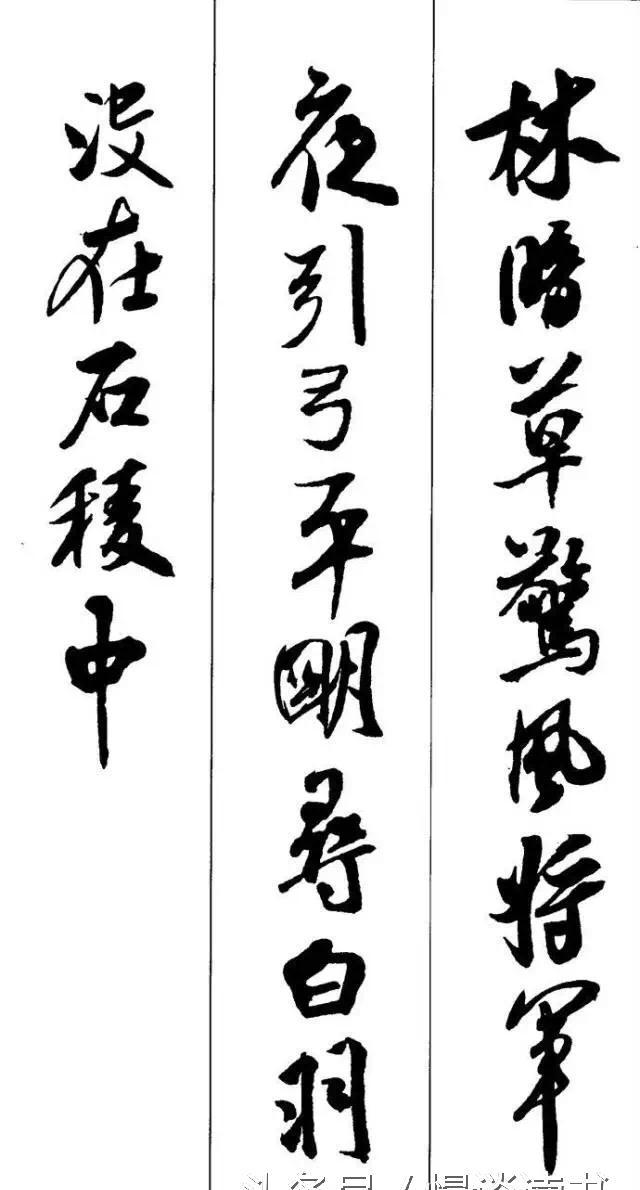 林暗草驚風将軍
夜引弓平明尋白羽
没在石稜中
头条号 /